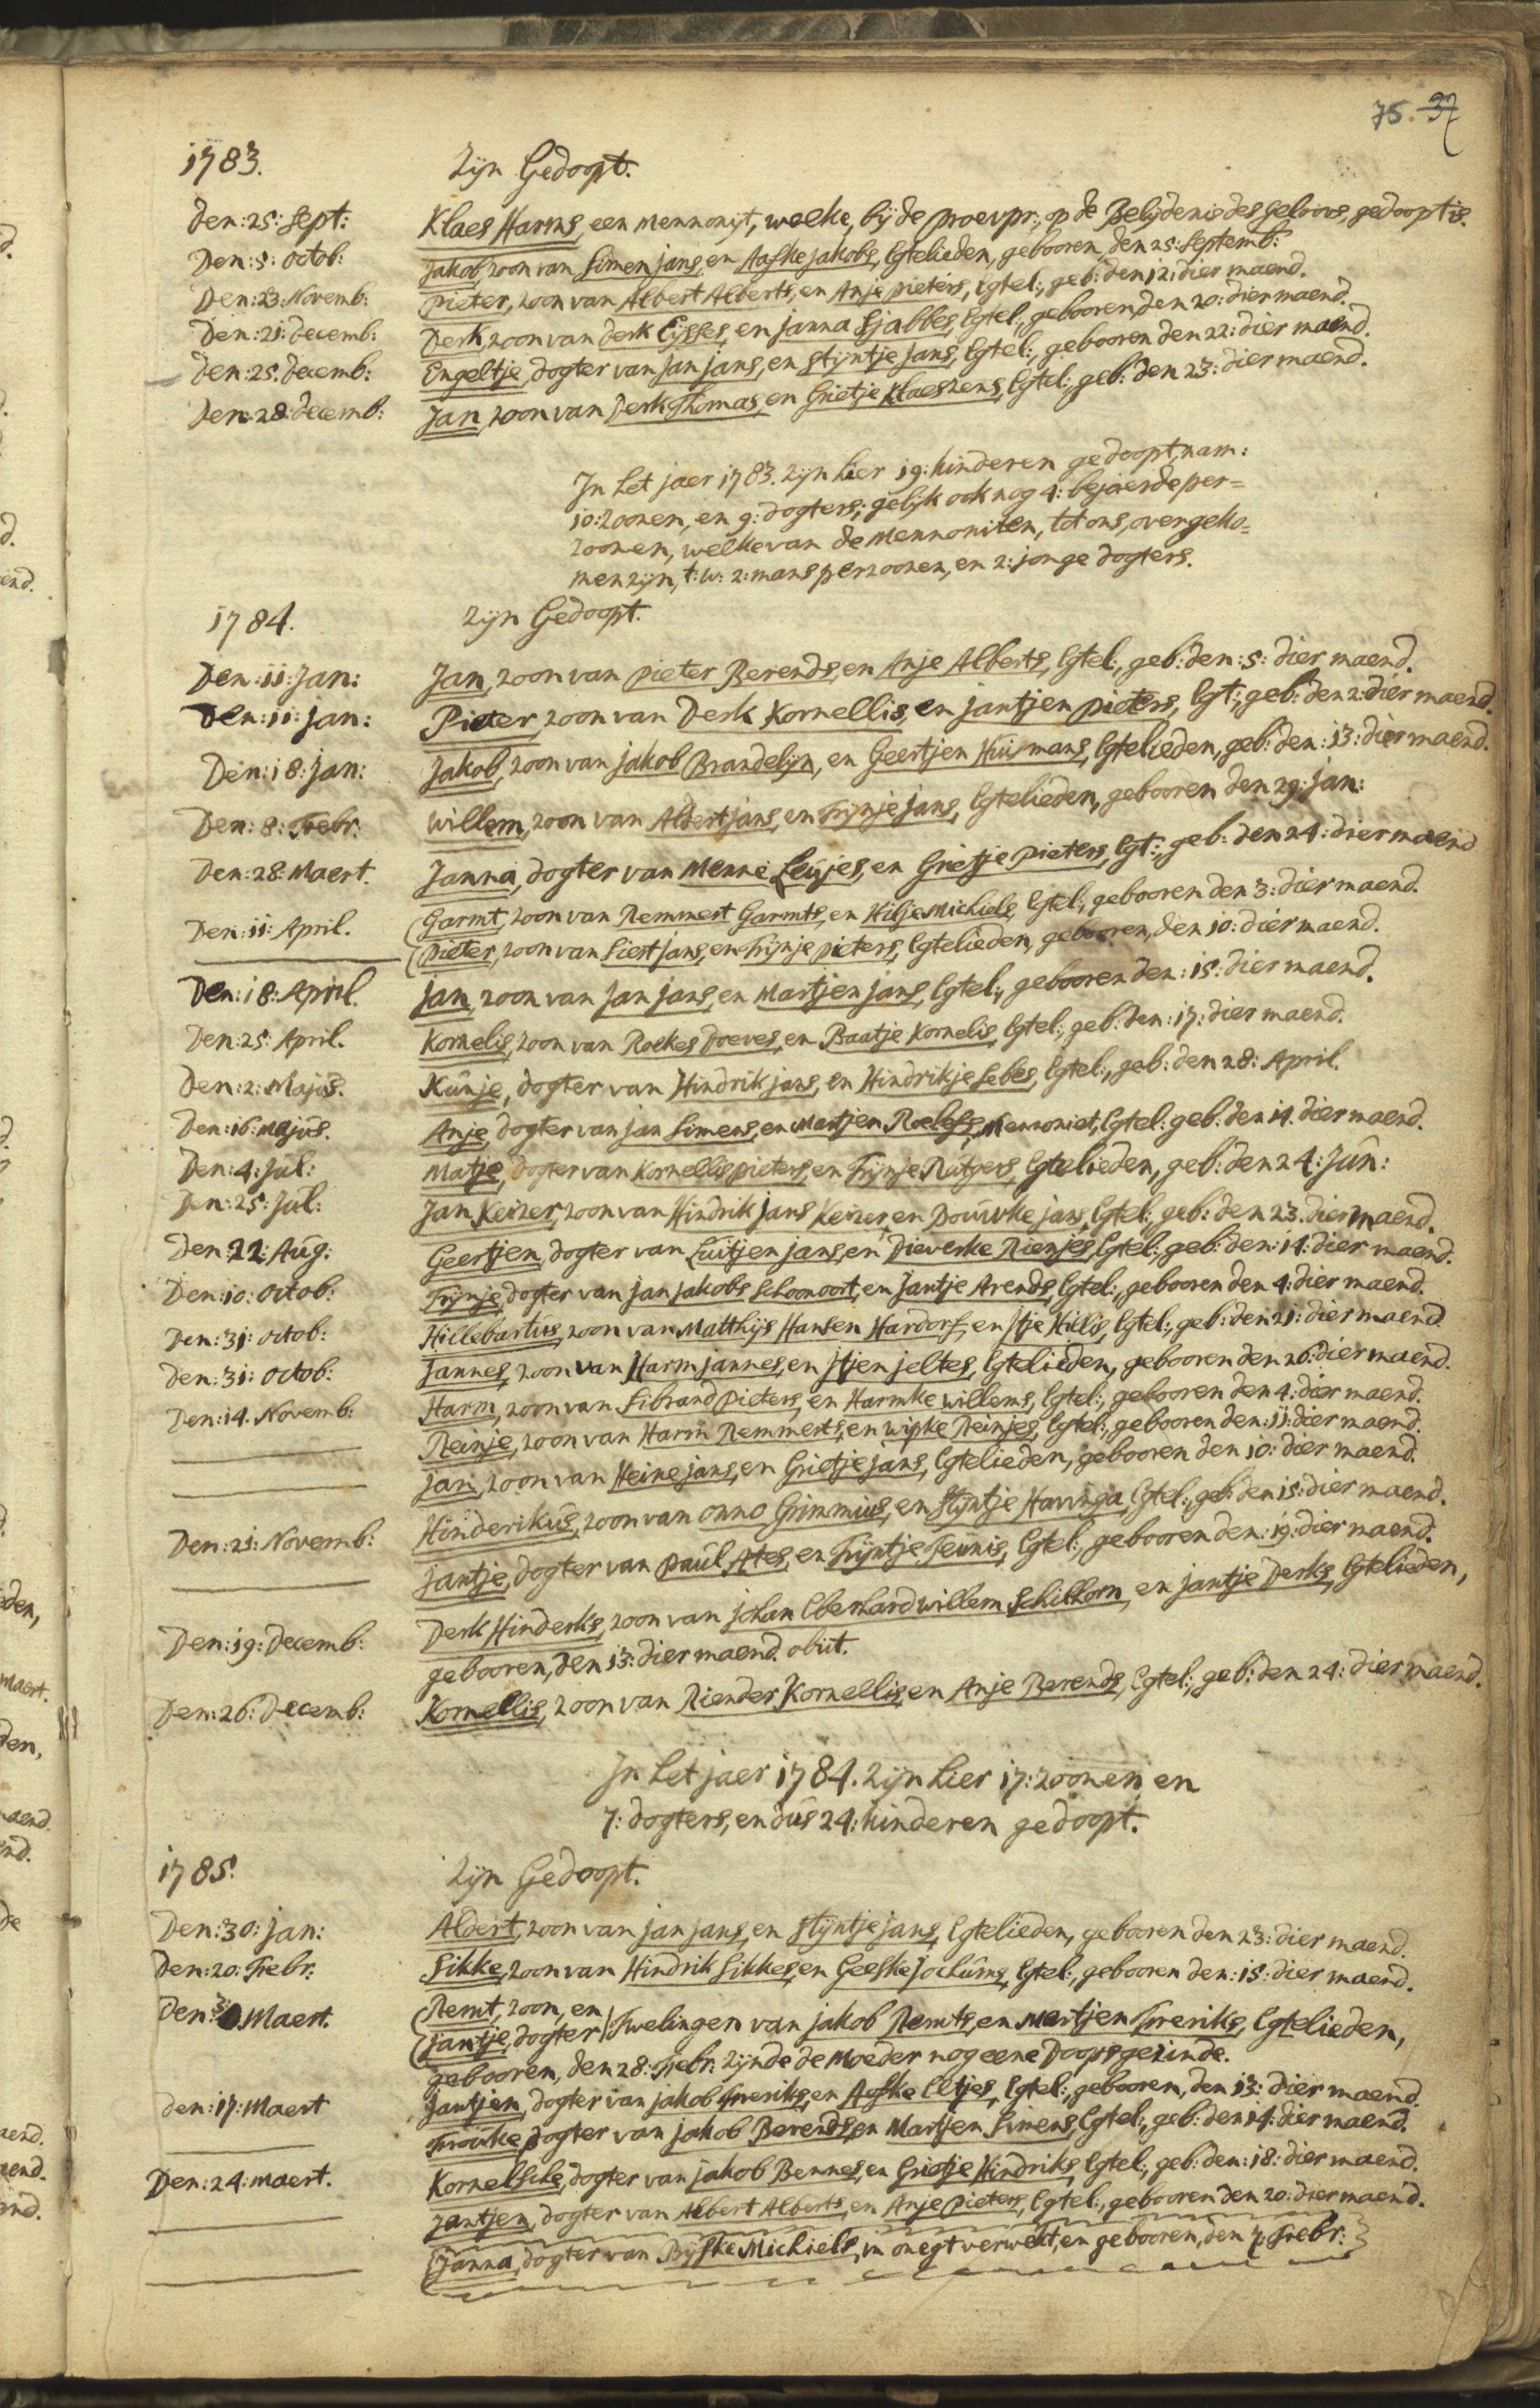 75. 37
1783. Zijn Gedoopt.
Den: 25: Sept: Klaes Harms, een Mennonijt, welke, bij de proevpr:, op de Belijdenis des Geloovs, gedoopt is.
Den: 5: octob: Jakob, zoon van Simen jans, en Aafke jakobs, Egtelieden, gebooren, den 25: Septemb:
Den: 23: Novemb: Pieter, zoon van Albert Alberts, en Anje pieters, Egtel:, geb: den 12: dier maend.
Den: 21: decemb: Derk, zoon van derk Eijsses, en janna Sjabbes, Egtel:, gebooren den 20: dier maend.
den: 25: decemb: Engeltje, dogter van Jan jans, en stijntje jans, Egtel:, gebooren den 22: dier maend.
Den: 28: decemb: Jan, zoon van Derk Thomas, en Grietje Klaeszens, Egtel:, geb: den 23: dier maend.
In het jaer 1783. zijn hier 19: kinderen gedoopt, nam:
10: zoonen, en 9: dogters; gelijk ook nog 4: bejaerde per=
zoonen, welke van de Mennoniten, tot ons, overgeko=
men zijn, t: w: 2: mans perzoonen, en 2: jonge dogters.
1784. Zijn Gedoopt.
Den: 11: Jan: Jan, zoon van pieter Berends, en Anje Alberts, Egtel:, geb: den: 5: dier maend.
Den: 11: jan: Pieter, zoon van Derk Kornellis, en jantjen pieters, Egt:, geb: den 2: dier maend.
Den: 18: jan: Jakob, zoon van jakob Brandelijn, en Geertjen Huismans, Egtelieden, geb: den: 13: dier maend.
Den: 8: Febr: Willem, zoon van Aldert jans, en Trijnje jans, Egtelieden, gebooren den 29: jan:
Den: 28: Maert. Janna, dogter van Menne Leujes, en Grietje pieters, Egt:, geb: den 24: dier maend
Den: 11: April. Garmt, zoon van Remmert Garmts, en Hilje Michiels, Egtel:, gebooren den 3: dier maend.
pieter, zoon van Siert jans, en Trijnje pieters, Egtelieden, gebooren, den 10: dier maend.
Den: 18: April. jan, zoon van Jan jans, en Martjen jans, Egtel:, gebooren den: 15: dier maend.
Den: 25: April. Kornelis, zoon van Roekes Doeves, en Baatje Kornelis, Egtel:, geb: den: 17: dier maend.
Den: 2: Majus. Kunje, dogter van Hindrik jans, en Hindrikje Sebes, Egtel:, geb: den 28: April.
Den: 16: majus. Anje, dogter van jan Simens, en Martjen Roelefs, Mennoniet, Egtel: geb: den 14. dier maend.
Den: 4: Jul: Matje, dogter van Kornellis pieters, en Trijnje Rutgers, Egtelieden, geb: den 24: Jun:
Den: 25: Jul: Jan Keizer, zoon van Hindrik jans Keizer, en Douwke jans, Egtel:, geb: den 23. dier maend.
Den 22: Aug: Geertjen, dogter van Luitjen jans, en Dieverke Rienjes, Egtel:, geb: den: 14: dier maend.
Den: 10: octob: Trijnje, dogter van jan jakobs Schoonoort, en jantje Arends, Egtel:, gebooren den 4: dier maend.
Den: 31: octob: Hillebartus, zoon van Matthijs Hansen Hardorf, en Itje Hillis, Egtel:, geb: den 21: dier maend.
Den: 31: octob: Jannes, zoon van Harm jannes, en Itjen jeltes, Egtelieden, gebooren den 26: dier maend.
Den: 14. Novemb: Harm, zoon van Sibrand Pieters, en Harmke willems, Egtel:, gebooren den 4: dier maend.
Reinje, zoon van Harm Remmerts, en wipke Reinjes, Egtel:, gebooren den: 11: dier maend.
Jan, zoon van Heine jans, en Grietje jans, Egtelieden, gebooren den 10: dier maend.
Den: 21: Novemb: Hinderikus, zoon van onno Grimmius, en Stijntje Havinga, Egtel:, geb: den 15: dier maend.
jantje, dogter van Paul Ates, en Trijntje Teunis, Egtel:, gebooren den: 19: dier maend.
Den: 19: decemb: Derk Hinderks, zoon van johan Eberhard willem Schilhorn, en jantje Derks, Egtelieden,
gebooren, den 13: dier maend. obiit.
Den: 26: Decemb: Kornellis, zoon van Riender Kornellis, en Anje Berends, Egtel:, geb: den 24: dier maend.
In het jaer 1784. zijn hier 17: zoonen, en
7: dogters, en dus 24: kinderen gedoopt.
1785. Zijn Gedoopt.
Den: 30: jan: Aldert, zoon van jan jans, en stijntje jans, Egtelieden, gebooren den 23: dier maend.
Den: 20: Febr: Sikke, zoon van Hindrik Sikkes, en Geeske Jochums, Egtel:, gebooren den: 15: dier maend.
Den: Maert. Remt, zoon, en
jantje, dogter Twelingen van jakob Remts, en Martjen Freriks, Egtelieden,
gebooren, den 28: Febr: zijnde de Moeder nog eene Doopsgezinde.
den: 17: Maert Jantjen, dogter van jakob Freriks, en Aafke Eltjes, Egtel:, gebooren, den 13: dier maend.
Trouke, dogter van jakob Berends, en Martjen Simens, Egtel:, geb: den 14: dier maend.
Den: 24: maert. Kornelske, dogter van jakob Bennes, en Grietje Hindriks, Egtel:, geb: den: 18: dier maend.
Jantjen, dogter van Albert Alberts, en Anje pieters, Egtel:, gebooren den 20: dier maend.
Janna, dogter van Bijfke Michiels, in onegt verwekt, en gebooren, den 7: Febr: